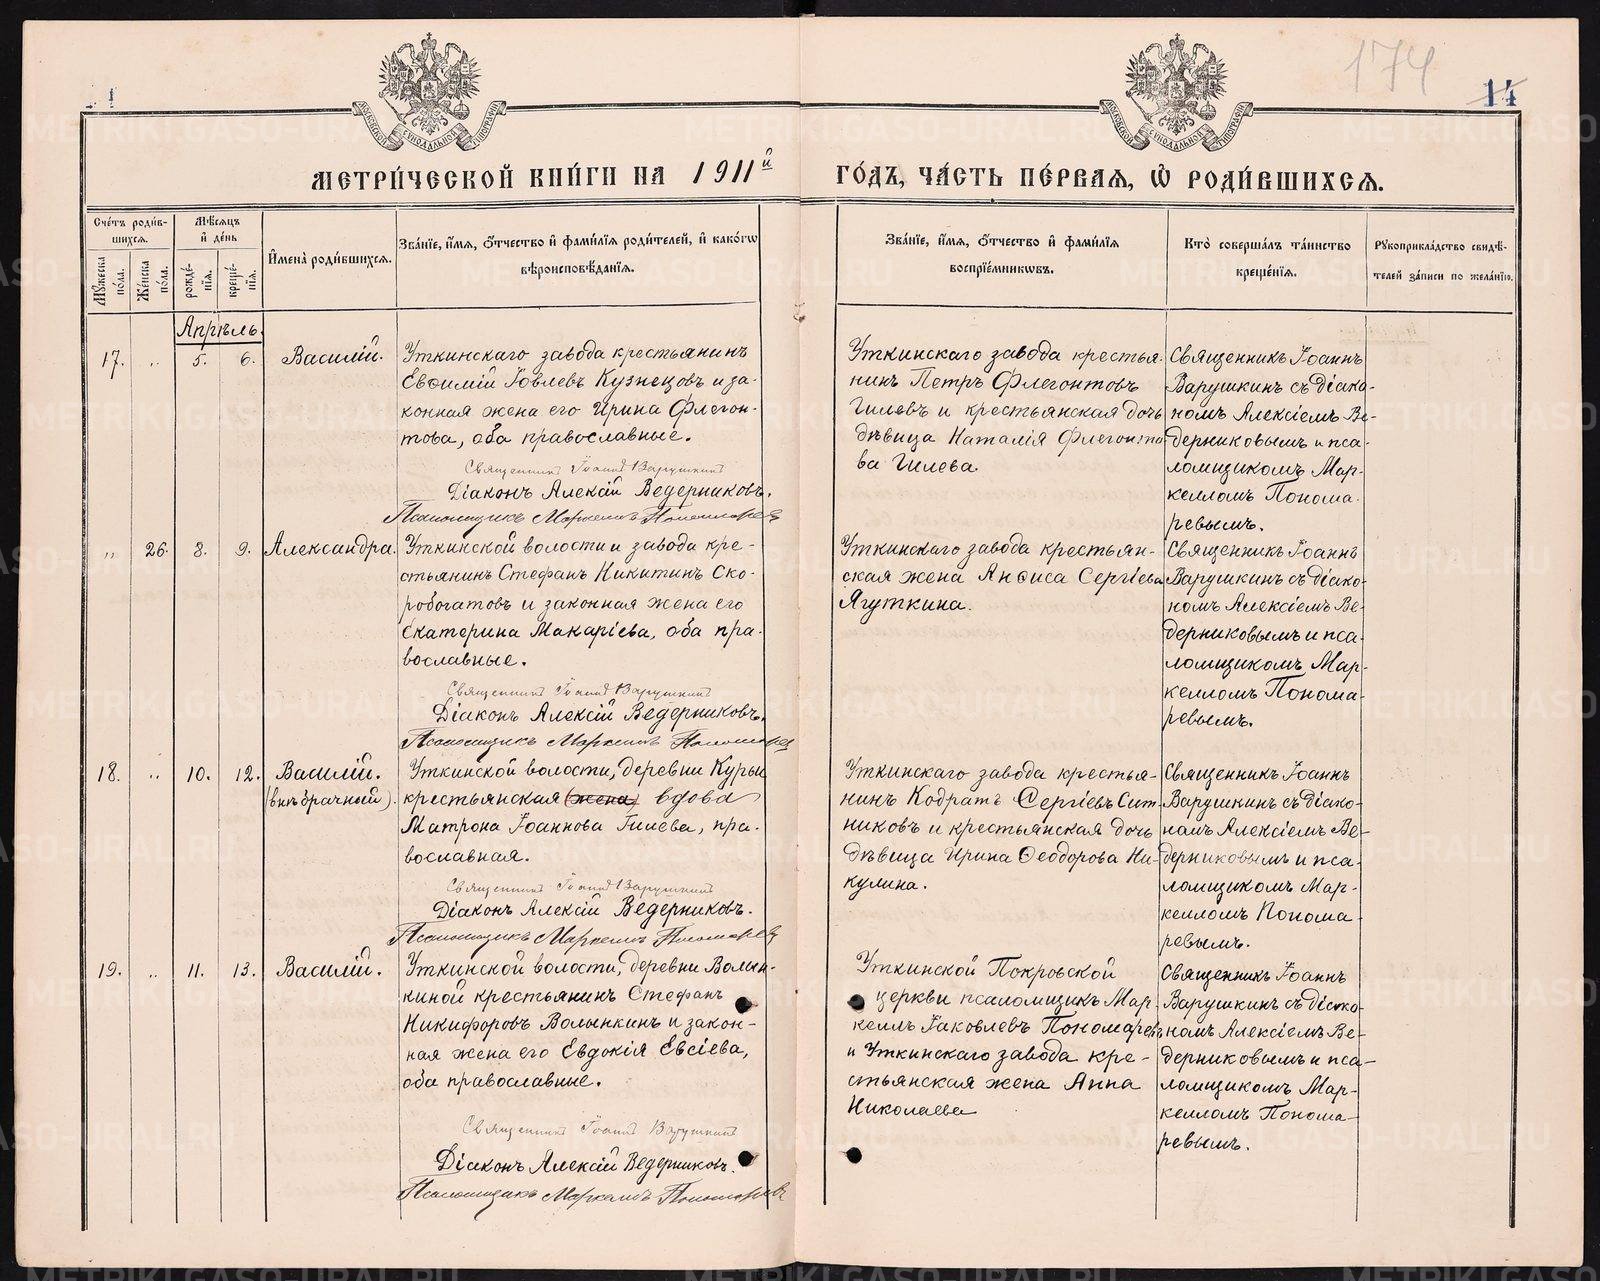 174
14
МЕТРИ́ЧЕСКОЙ КНИ́ГИ НА 1911й ГО́ДЪ, ЧА́СТЬ ПЕ́РВАѦ, Ѽ РОДИ́ВШИХСѦ.
Сче́тъ роди́в-
шихсѧ.
Мꙋ́жеска по́ла.
Же́нска по́ла.
Мѣ́сѧцъ и҆ де́нь
рожде́-
нїѧ.
креще́-
нїѧ.
И҆мена̀ роди́вшихсѧ.
Зва́нїе, и҆́мѧ, ѻ҆́тчество и҆ фами́лїѧ роди́телей, и҆ како́гѡ
вѣроисповѣ́данїѧ.
Зва́нїе, и҆́мѧ, ѻ҆́тчество и҆ фами́лїѧ
воспрїе́мникѡвъ.
Кто̀ соверша́лъ та́инство
креще́нїѧ.
Рꙋкоприкла́дство свидѣ́-
телей за́писи по жела́нїю.
Апрѣль.
17. „ 5. 6. Василій.
Уткинскаго завода крестьянинъ
Евѳимій Іовлевъ Кузнецовъ и за-
конная жена его Ирина Флегон-
това, оба православные.
Священникъ Іоаннъ Варушкинъ
Діаконъ Алексій Ведерниковъ.
Псаломщикъ Маркеллъ Пономаревъ
Уткинскаго завода крестья-
нинъ Петръ Флегонтовъ
Гилевъ и крестьянская дочь
дѣвица Наталія Флегонто-
ва Гилева.
Священникъ Іоаннъ
Варушкинъ съ діако-
номъ Алексіемъ Ве-
дерниковымъ и пса-
ломщикомъ Мар-
келломъ Понома-
ревымъ.
„ 26. 8. 9. Александра.
Уткинской волости и завода кре-
стьянинъ Стефанъ Никитинъ Ско-
робогатовъ и законная жена его
Екатерина Макаріева, оба пра-
вославные.
Священникъ Іоаннъ Варушкинъ
Діаконъ Алексій Ведерниковъ.
Псаломщикъ Маркеллъ Пономаревъ
Уткинскаго завода крестьян-
ская жена Анѳиса Сергіева
Ягуткина.
Священникъ Іоаннъ
Варушкинъ съ діако-
номъ Алексіемъ Ве-
дерниковымъ и пса-
ломщикомъ Мар-
келломъ Понома-
ревымъ.
18. „ 10. 12. Василій.
(внѣбрачный).
Уткинской волости, деревни Курьи
крестьянская (жена) вдова
Матрона Іоаннова Гилева, пра-
вославная.
Священникъ Іоаннъ Варушкинъ
Діаконъ Алексій Ведерниковъ.
Псаломщикъ Маркеллъ Пономаревъ
Уткинскаго завода крестья-
нинъ Кодратъ Сергіевъ Сит-
никовъ и крестьянская дочь
дѣвица Ирина Ѳеодорова Ни-
кулина.
Священникъ Іоаннъ
Варушкинъ съ діако-
номъ Алексіемъ Ве-
дерниковымъ и пса-
ломщикомъ Мар-
келломъ Понома-
ревымъ.
19. „ 11. 13. Василій.
Уткинской волости, деревни Волын-
киной крестьянинъ Стефанъ
Никифоровъ Волынкинъ и закон-
ная жена его Евдокія Евсіева,
оба православные.
Священникъ Іоаннъ Варушкинъ
Діаконъ Алексій Ведерниковъ.
Псаломщикъ Маркеллъ Пономаревъ
Уткинской Покровской
церкви псаломщикъ Мар-
келлъ Іаковлевъ Пономаревъ
и Уткинскаго завода кре-
стьянская жена Анна
Николаева
Священникъ Іоаннъ
Варушкинъ съ діако-
номъ Алексіемъ Ве-
дерниковымъ и пса-
ломщикомъ Мар-
келломъ Понома-
ревымъ.